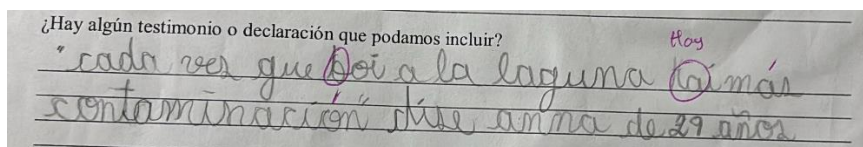 ¿Hay algún testimonio o declaración que podamos incluir?
Hoy
"cada ves que boi a la laguna ai más
contaminación" dise amma de 29 años